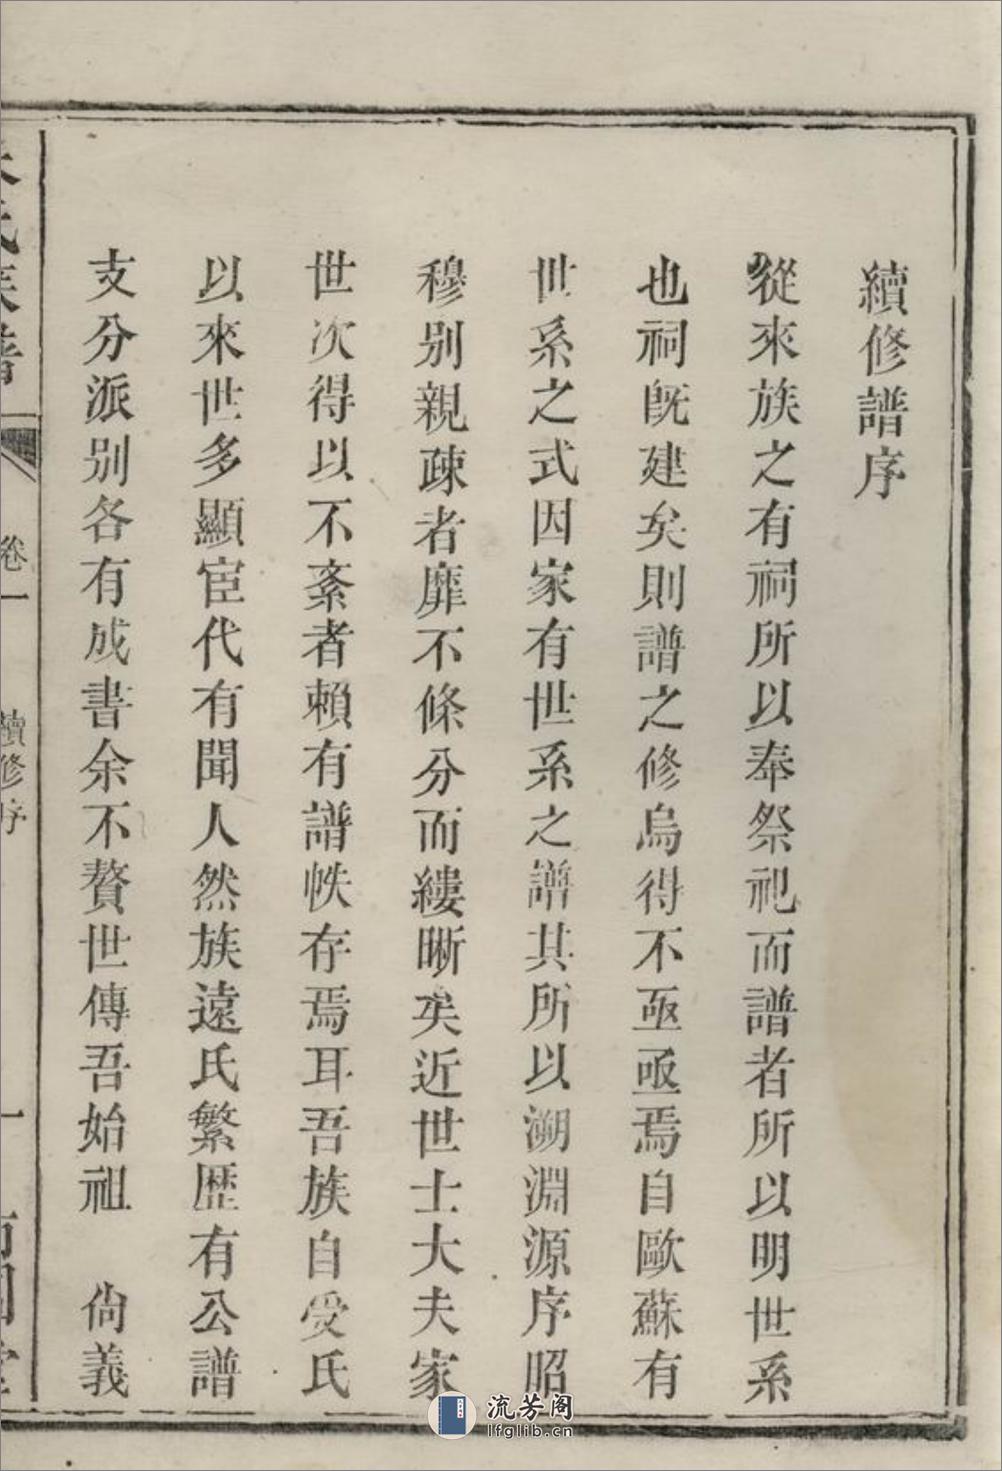 續修譜序
從來族之有祠所以奉祭祀而譜者所以明世系
也祠旣建矣則譜之修烏得不亟亟焉自歐蘇有
世系之式因家有世系之譜其所以溯淵源序昭
穆別親疎者靡不條分而縷晰矣近世士大夫家
世次得以不紊者賴有譜帙存焉耳吾族自受氏
以來世多顯宦代有聞人然族遠氏繁歷有公譜
支分派別各有成書余不贅世傳吾始祖 尙義
氏族譜 卷一 續修序 一
流芳阁
lfglib.cn